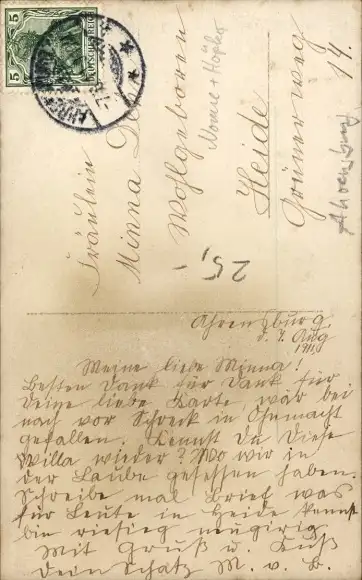 5
5
DEUTSCHES REICH
AHRENSBURG
Fräulein
Minna
Wohlgeboren
Heide
Grünerweg
14.
25,-
Ahrensburg
Ahrensburg,
d. 7. Aug
1911
Meine liebe Minna!
Besten Dank für Dank für
Deine liebe Karte wär bei
nach vor Schreck in Ohnmacht
gefallen. Kennst Du Diese
Willa wieder? Wo wir in
der Laube gesessen haben.
Schreibe mal Brief was
für Leute in Heide kennst
bin riesieg neugirig
Mit Gruß u. Kuß
Dein Schatz M. v. B.